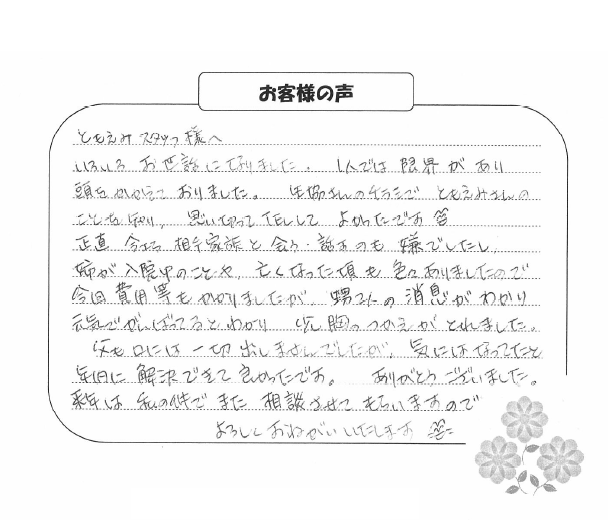 お客様の声
ともえみスタッフ様へ
いろいろお世話になりました。1人では限界があり
頭をかかえておりました。生協さんのチラシでともえみさんの
ことを知り、思い切ってTELしてよかったです
正直今さら相手家族と会う・話すのも嫌でしたし
姉が入院中のことや、亡くなった頃も色々ありましたので
今回費用等もかかりましたが、甥っ子の消息がわかり
元気でがんばってるとわかり少し胸のつかえがとれました。
父も口には一切出しませんでしたが、気にはなってたと
年内に解決できて良かったです。ありがとうございました。
来年は私の件でまた相談させてもらいますので
よろしくおねがいいたします